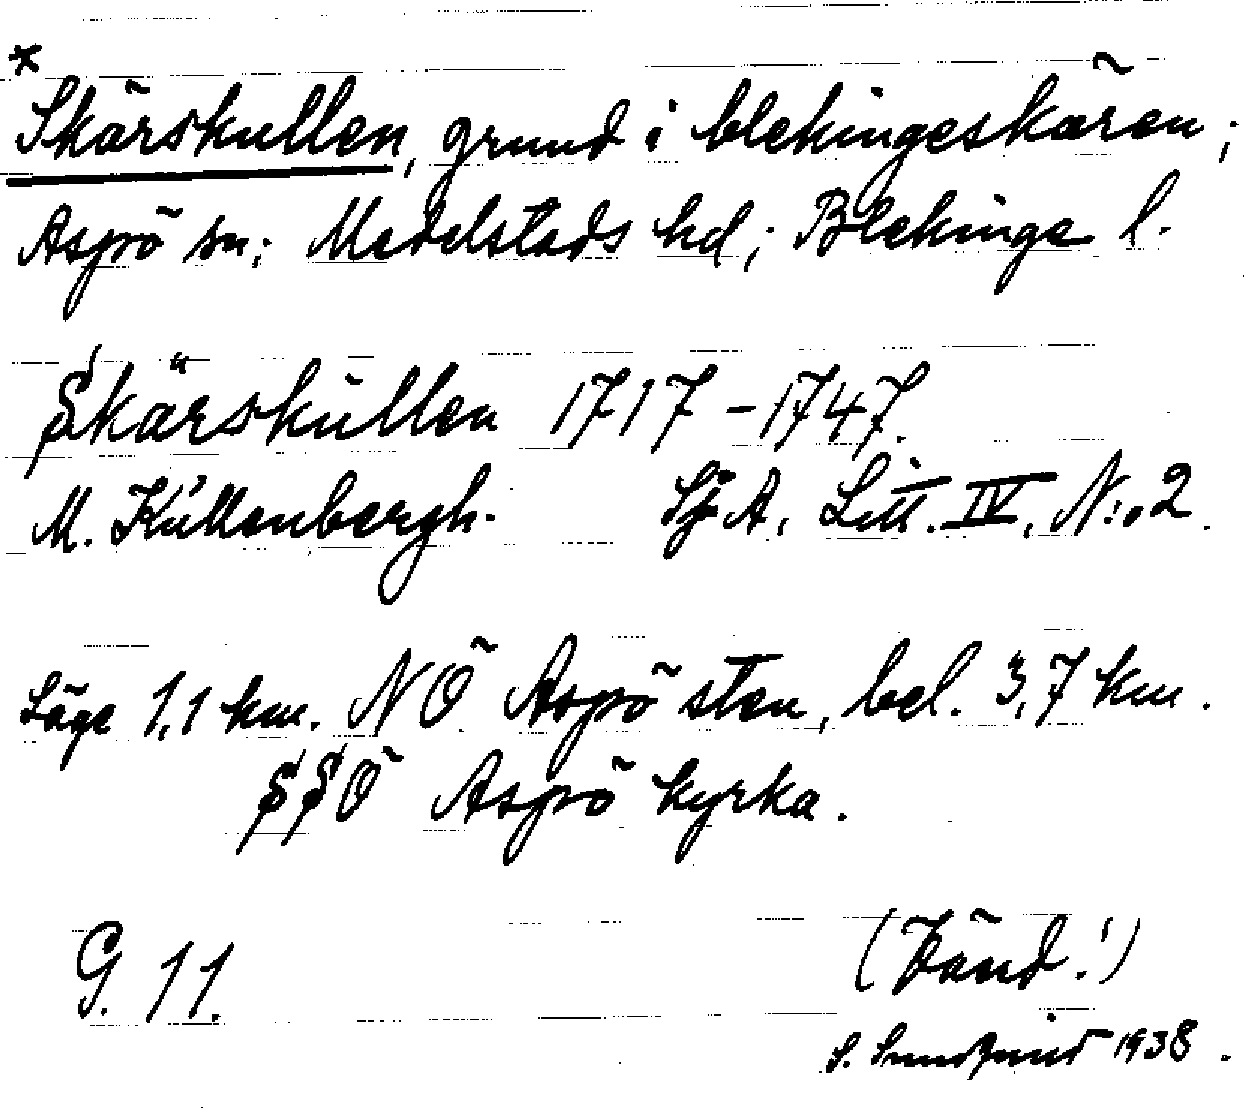 *
Skärskullen, grund i blekingeskären;
Aspö sn; Medelstads hd; Blekinge l.
Skärskullen 1717-1747.
M. Küllenbergh. Sj. A. Litt. IV. N:o 2.
Läge 1,1 km. NÖ Aspö sten, bel. 3,7 km.
SSÖ Aspö kyrka.
G. 11. (Känd!)
S. 1938.